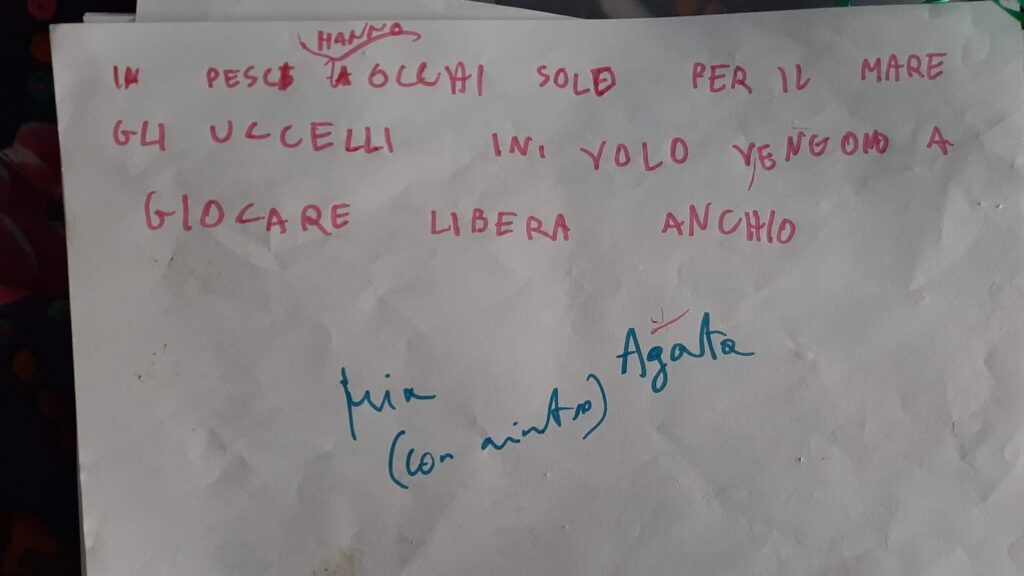 HANNO
IN PESCI OCCHI SOLO PER IL MARE
GLI UCCELLI IN VOLO VENGONO A
GIOCARE LIBERA ANCHIO
Agata
Mia
(con aiuto)